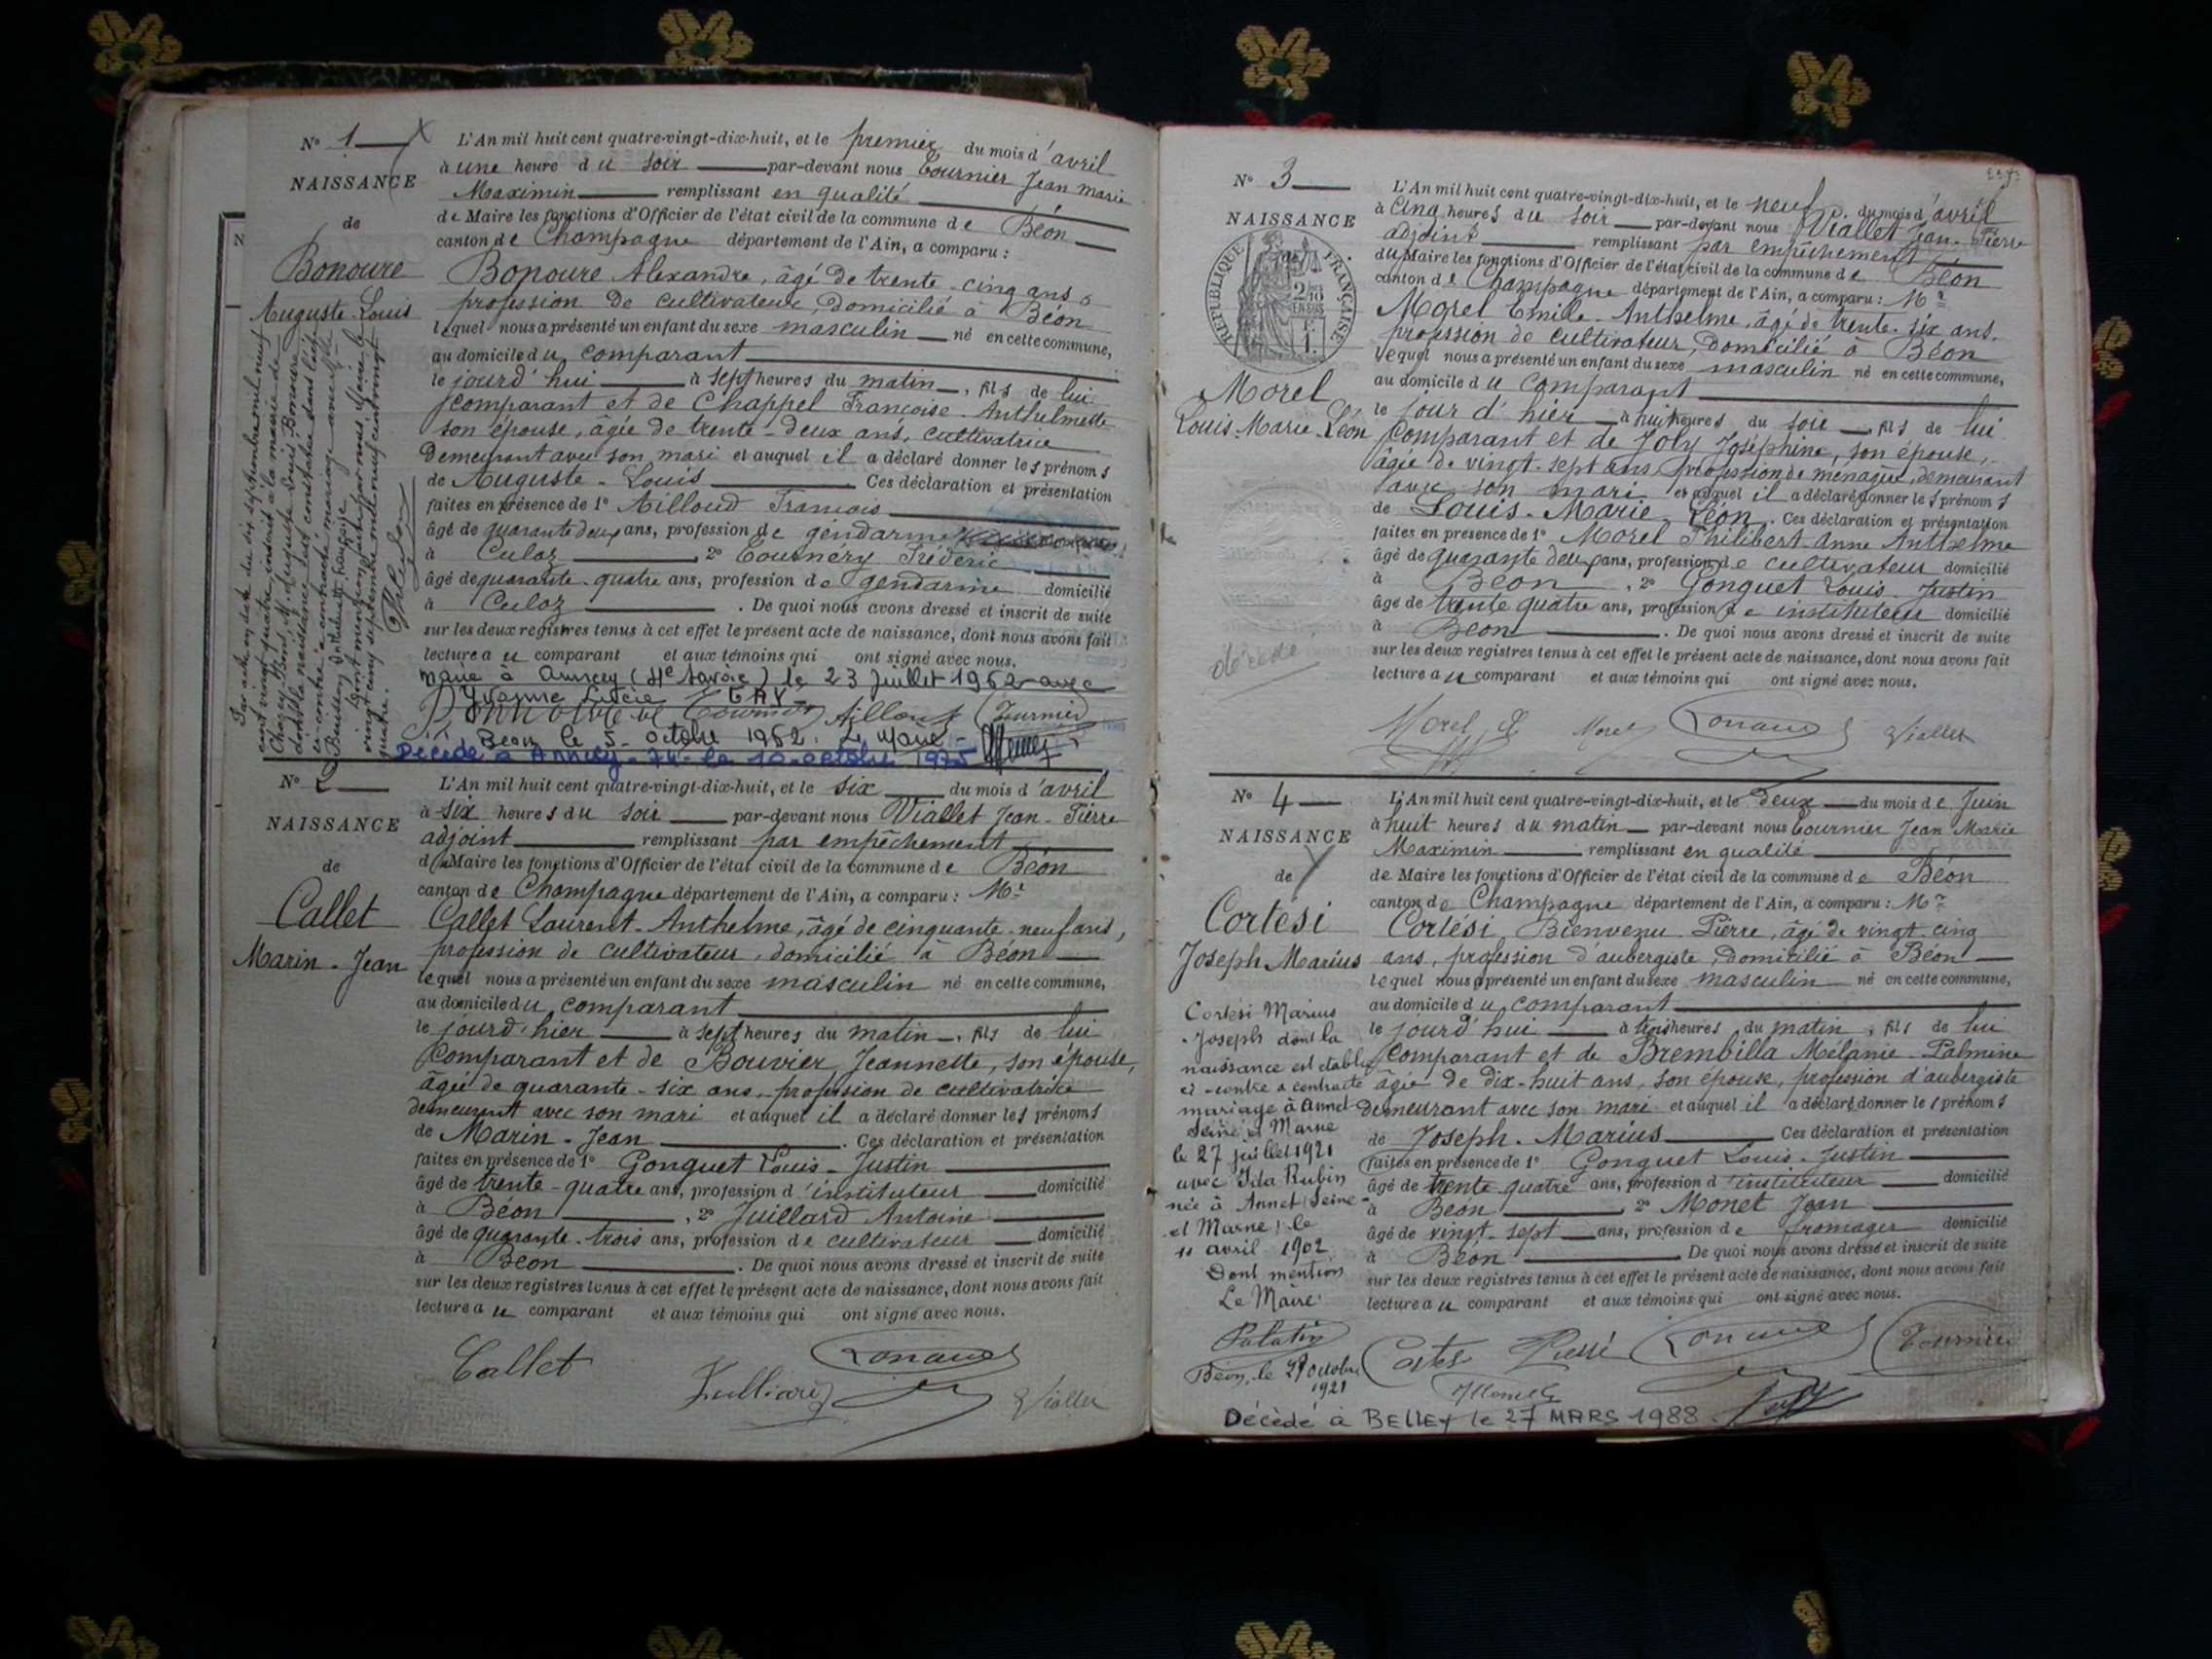 N° 1
NAISSANCE
de
Bonoure
Auguste-Louis
L'An mil huit cent quatre-vingt-dix-huit, et le premier du mois d'avril
à une heure du soir par-devant nous Tournier Jean Marie
Maximin remplissant en qualité
de Maire les fonctions d'Officier de l'état civil de la commune de Béon
canton de Champagne département de l'Ain, a comparu :
Bonoure Alexandre, âgé de trente-cinq ans
profession de cultivateur, domicilié à Béon
lequel nous a présenté un enfant du sexe masculin né en cette commune,
au domicile du comparant
le jourd'hui à sept heures du matin, fils de lui
comparant et de Chappel Françoise-Anthelmette
son épouse, âgée de trente-deux ans, cultivatrice
demeurant avec son mari et auquel il a déclaré donner les prénoms
de Auguste-Louis Ces déclaration et présentation
faites en présence de 1° Ailloud François
âgé de quarante deux ans, profession de gendarme
à Culoz 2° Tournéry Frédéric
âgé de quarante-quatre ans, profession de gendarme domicilié
à Culoz . De quoi nous avons dressé et inscrit de suite
sur les deux registres tenus à cet effet le présent acte de naissance, dont nous avons fait
lecture au comparant et aux témoins qui ont signé avec nous.
Marié à Annecy (Hte Savoie) le 23 juillet 1962 avec
Yvonne Lucie
Béon le octobre 1962. Le Maire
Décédé à Annecy - 74 - le 10 octobre 1975
N° 2
NAISSANCE
de
Callet
Marin-Jean
L'An mil huit cent quatre-vingt-dix-huit, et le six du mois d'avril
à six heures du soir par-devant nous Viallet Jean-Pierre
adjoint remplissant par empêchement
du Maire les fonctions d'Officier de l'état civil de la commune de Béon
canton de Champagne département de l'Ain, a comparu : Mr
Callet Laurent-Anthelme, âgé de cinquante-neuf ans,
profession de cultivateur, domicilié à Béon
lequel nous a présenté un enfant du sexe masculin né en cette commune,
au domicile du comparant
le jourd'hier à sept heures du matin, fils de lui
comparant et de Bouvier Jeannette, son épouse,
âgée de quarante-six ans, profession de cultivatrice
demeurant avec son mari et auquel il a déclaré donner les prénoms
de Marin-Jean . Ces déclaration et présentation
faites en présence de 1° Gonguet Louis-Justin
âgé de trente-quatre ans, profession d'instituteur domicilié
à Béon , 2° Juillard Antoine
âgé de quarante-trois ans, profession de cultivateur domicilié
à Béon . De quoi nous avons dressé et inscrit de suite
sur les deux registres tenus à cet effet le présent acte de naissance, dont nous avons fait
lecture au comparant et aux témoins qui ont signé avec nous.
Callet
Viallet
N° 3
NAISSANCE
de
RÉPUBLIQUE FRANÇAISE
Morel
Louis-Marie Léon
décédé
L'An mil huit cent quatre-vingt-dix-huit, et le neuf du mois d'avril
à cinq heures du soir par-devant nous Viallet Jean-Pierre
adjoint remplissant par empêchement
du Maire les fonctions d'Officier de l'état civil de la commune de Béon
canton de Champagne département de l'Ain, a comparu : Mr
Morel Emile-Anthelme, âgé de trente-six ans.
profession de cultivateur, domicilié à Béon
lequel nous a présenté un enfant du sexe masculin né en cette commune,
au domicile du comparant
le jour d'hier à huit heures du soir, fils de lui
comparant et de Joly Joséphine, son épouse,
âgée de vingt-sept ans profession de ménagère, demeurant
avec son mari et auquel il a déclaré donner les prénoms
de Louis-Marie Léon. Ces déclaration et présentation
faites en présence de 1° Morel Philibert-Anne Anthelme
âgé de quarante deux ans, profession de cultivateur domicilié
à Béon , 2° Gonguet Louis-Justin
âgé de trente quatre ans, profession de instituteur domicilié
à Béon . De quoi nous avons dressé et inscrit de suite
sur les deux registres tenus à cet effet le présent acte de naissance, dont nous avons fait
lecture au comparant et aux témoins qui ont signé avec nous.
Morel Morel Viallet
N° 4
NAISSANCE
de
Cortési
Joseph Marius
Cortési Marius
Joseph dont la
naissance est établie
ci-contre a contracté
mariage à Annet
Seine et Marne
le 27 juillet 1921
avec Ida Rubin
née à Annet Seine
et Marne, le
11 avril 1902
Dont mention
Le Maire
Béon, le 29 octobre
1921
L'An mil huit cent quatre-vingt-dix-huit, et le deux du mois de Juin
à huit heures du matin par-devant nous Tournier Jean Marie
Maximin remplissant en qualité
de Maire les fonctions d'Officier de l'état civil de la commune de Béon
canton de Champagne département de l'Ain, a comparu : Mr
Cortési Bienvenu-Pierre, âgé de vingt-cinq
ans, profession d'aubergiste, domicilié à Béon
lequel nous a présenté un enfant du sexe masculin né en cette commune,
au domicile du comparant
le jourd'hui à trois heures du matin, fils de lui
comparant et de Brembilla Mélanie-Palmine
âgée de dix-huit ans, son épouse, profession d'aubergiste
demeurant avec son mari et auquel il a déclaré donner les prénoms
de Joseph-Marius Ces déclaration et présentation
faites en présence de 1° Gonguet Louis-Justin
âgé de trente quatre ans, profession d'instituteur domicilié
à Béon , 2° Monet Jean
âgé de vingt-sept ans, profession de fromager domicilié
à Béon De quoi nous avons dressé et inscrit de suite
sur les deux registres tenus à cet effet le présent acte de naissance, dont nous avons fait
lecture au comparant et aux témoins qui ont signé avec nous.
Tournier
Décédé à BELLEY le 27 MARS 1988